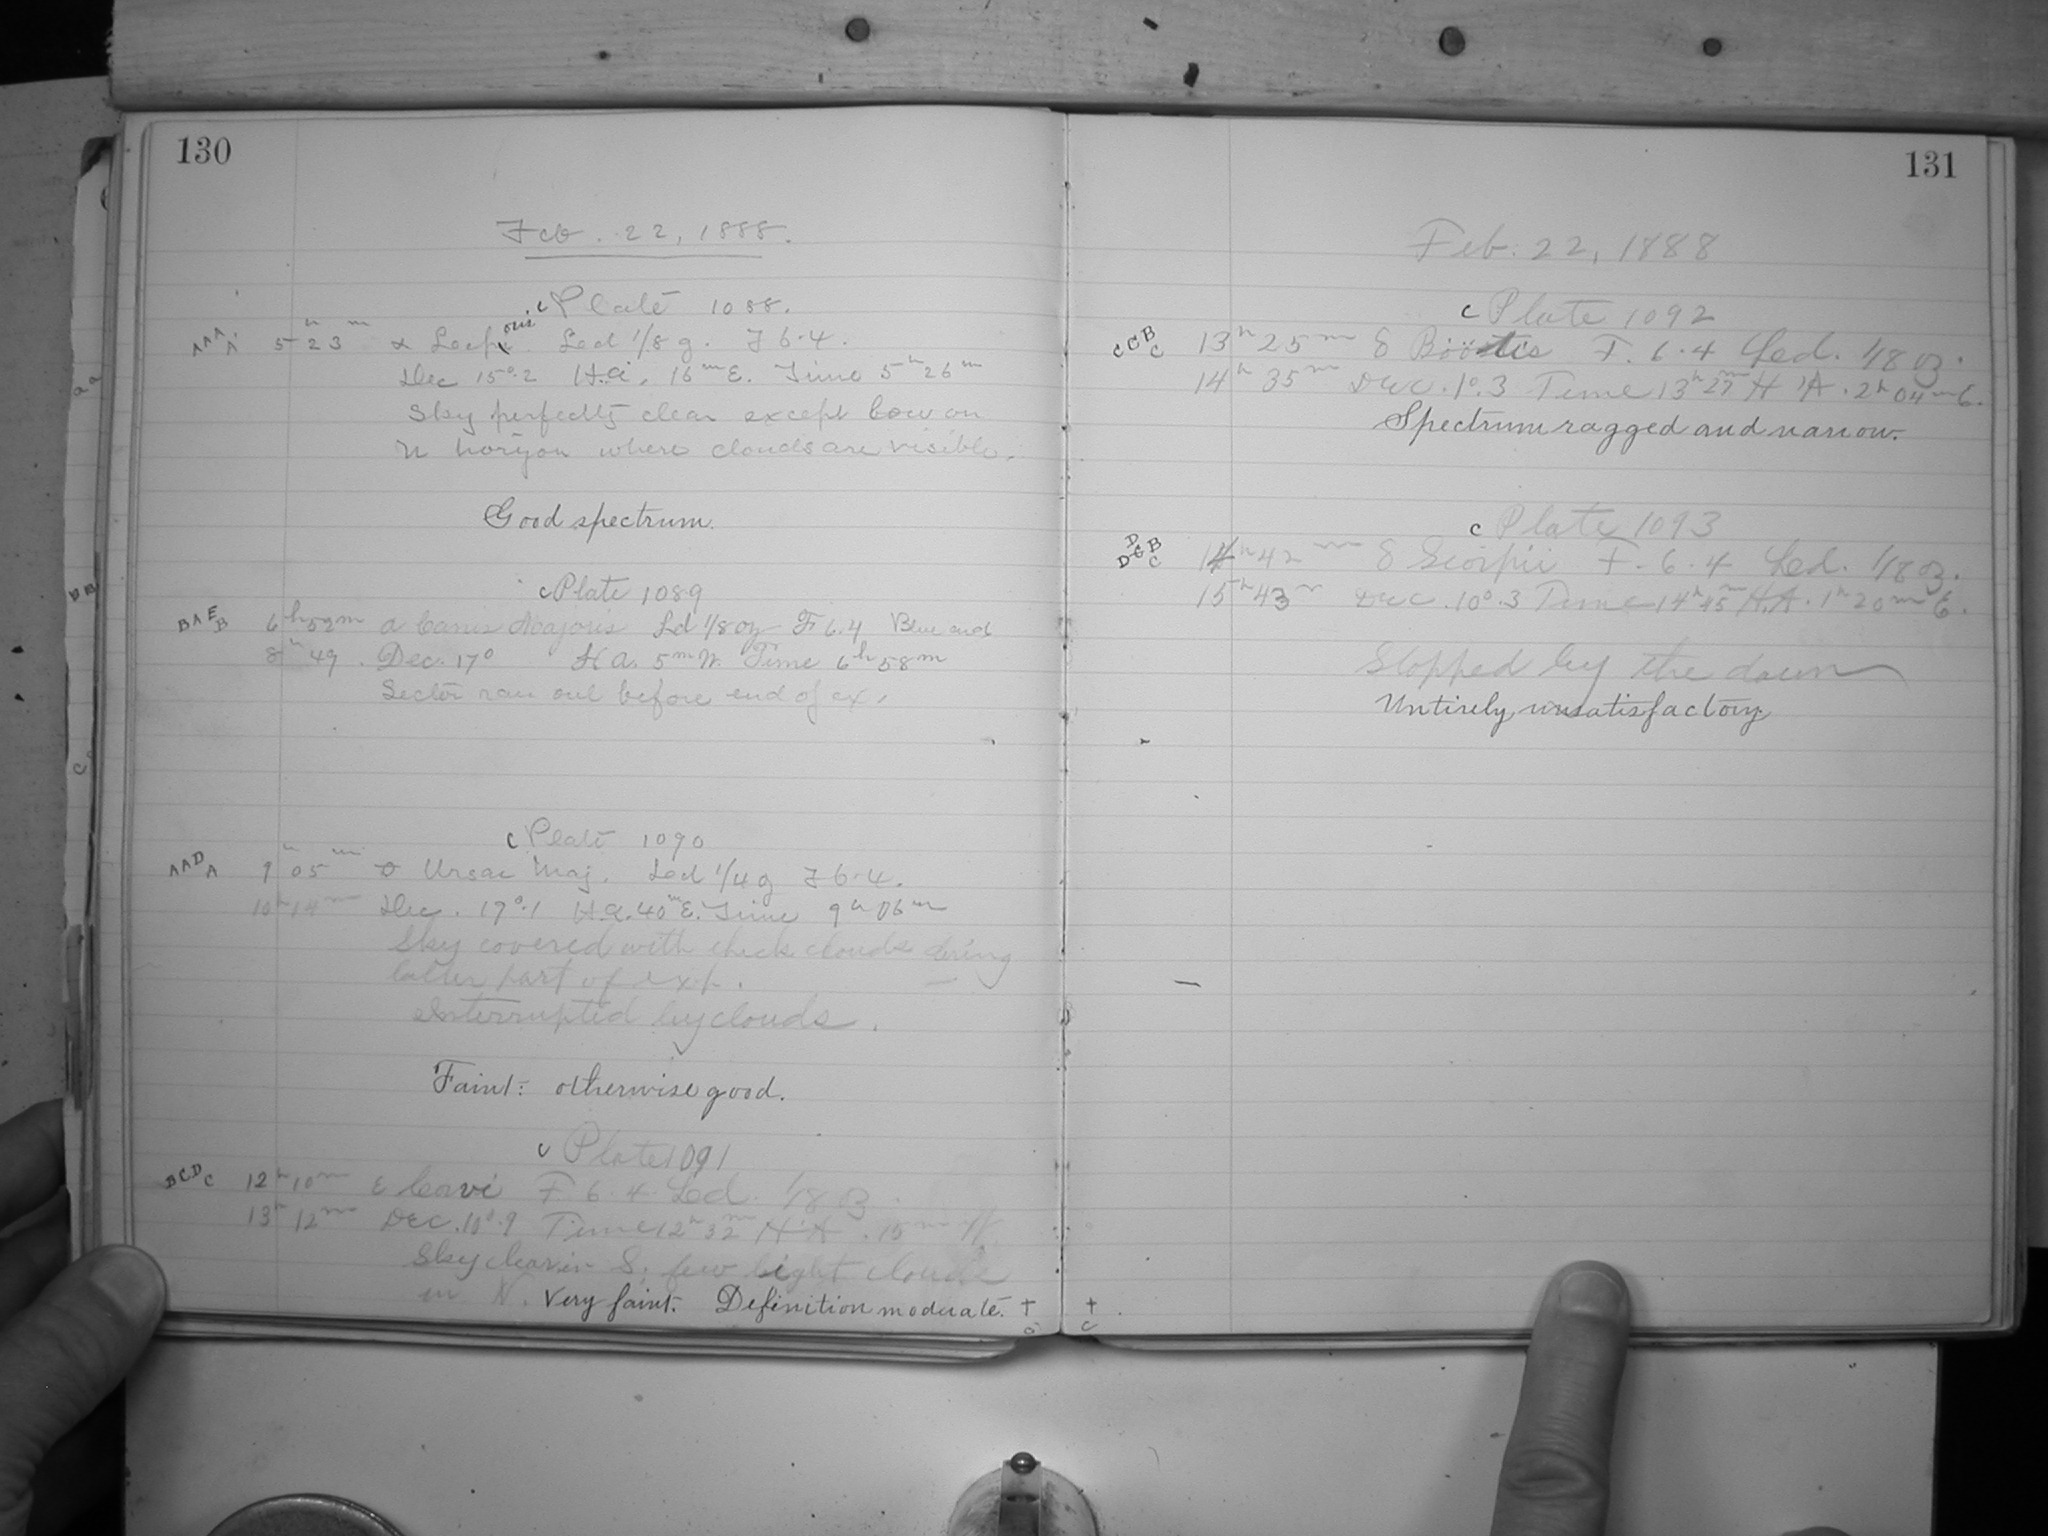 130
Feb. 22, 1888.
c Plate 1088.
AAAA 5h 23m α Leporis Led 1/8 z. F 6.4.
Dec 15°.2 H.a. 16m E. Time 5h 26m
Sky perfectly clear except low on
N horizon where clouds are visible.
Good spectrum.
c Plate 1089
BAEB 6h 52m α Canis Majoris Ld 1/8 oz F 6.4 Blue end
8h 49. Dec. 17° H a. 5m W. Time 6h 58m
Sector ran out before end of ex.
c Plate 1090
AADA 9h 05m Ursae Maj. Led 1/4 z F 6.4.
10h 14m Dec. 17°.1 H.a. 40m E. Time 9h 06m
Sky covered with thick clouds during
latter part of exp.
Interrupted by clouds.
Faint: otherwise good.
c Plate 1091
BCDC 12h 10m ε Corvi F 6.4. Led. 1/8 oz.
13h 12m Dec. 10°.9 Time 12h 32m H.A. 15m W.
Sky clear in S. few light clouds
in N. Very faint. Definition moderate. +
131
Feb. 22, 1888
c Plate 1092
CCBC 13h 25m δ Boötis F. 6.4 Led. 1/8 oz.
14h 35m Dec. 1°.3 Time 13h 27m H.A. 2h 04m E.
Spectrum ragged and narrow.
c Plate 1093
14h 42m δ Scorpii F. 6.4 Led. 1/8 oz.
15h 43m Dec. 10°.3 Time 14h 45m H.A. 1h 20m E.
Stopped by the dawn
Untirely unsatisfactory.
+
c